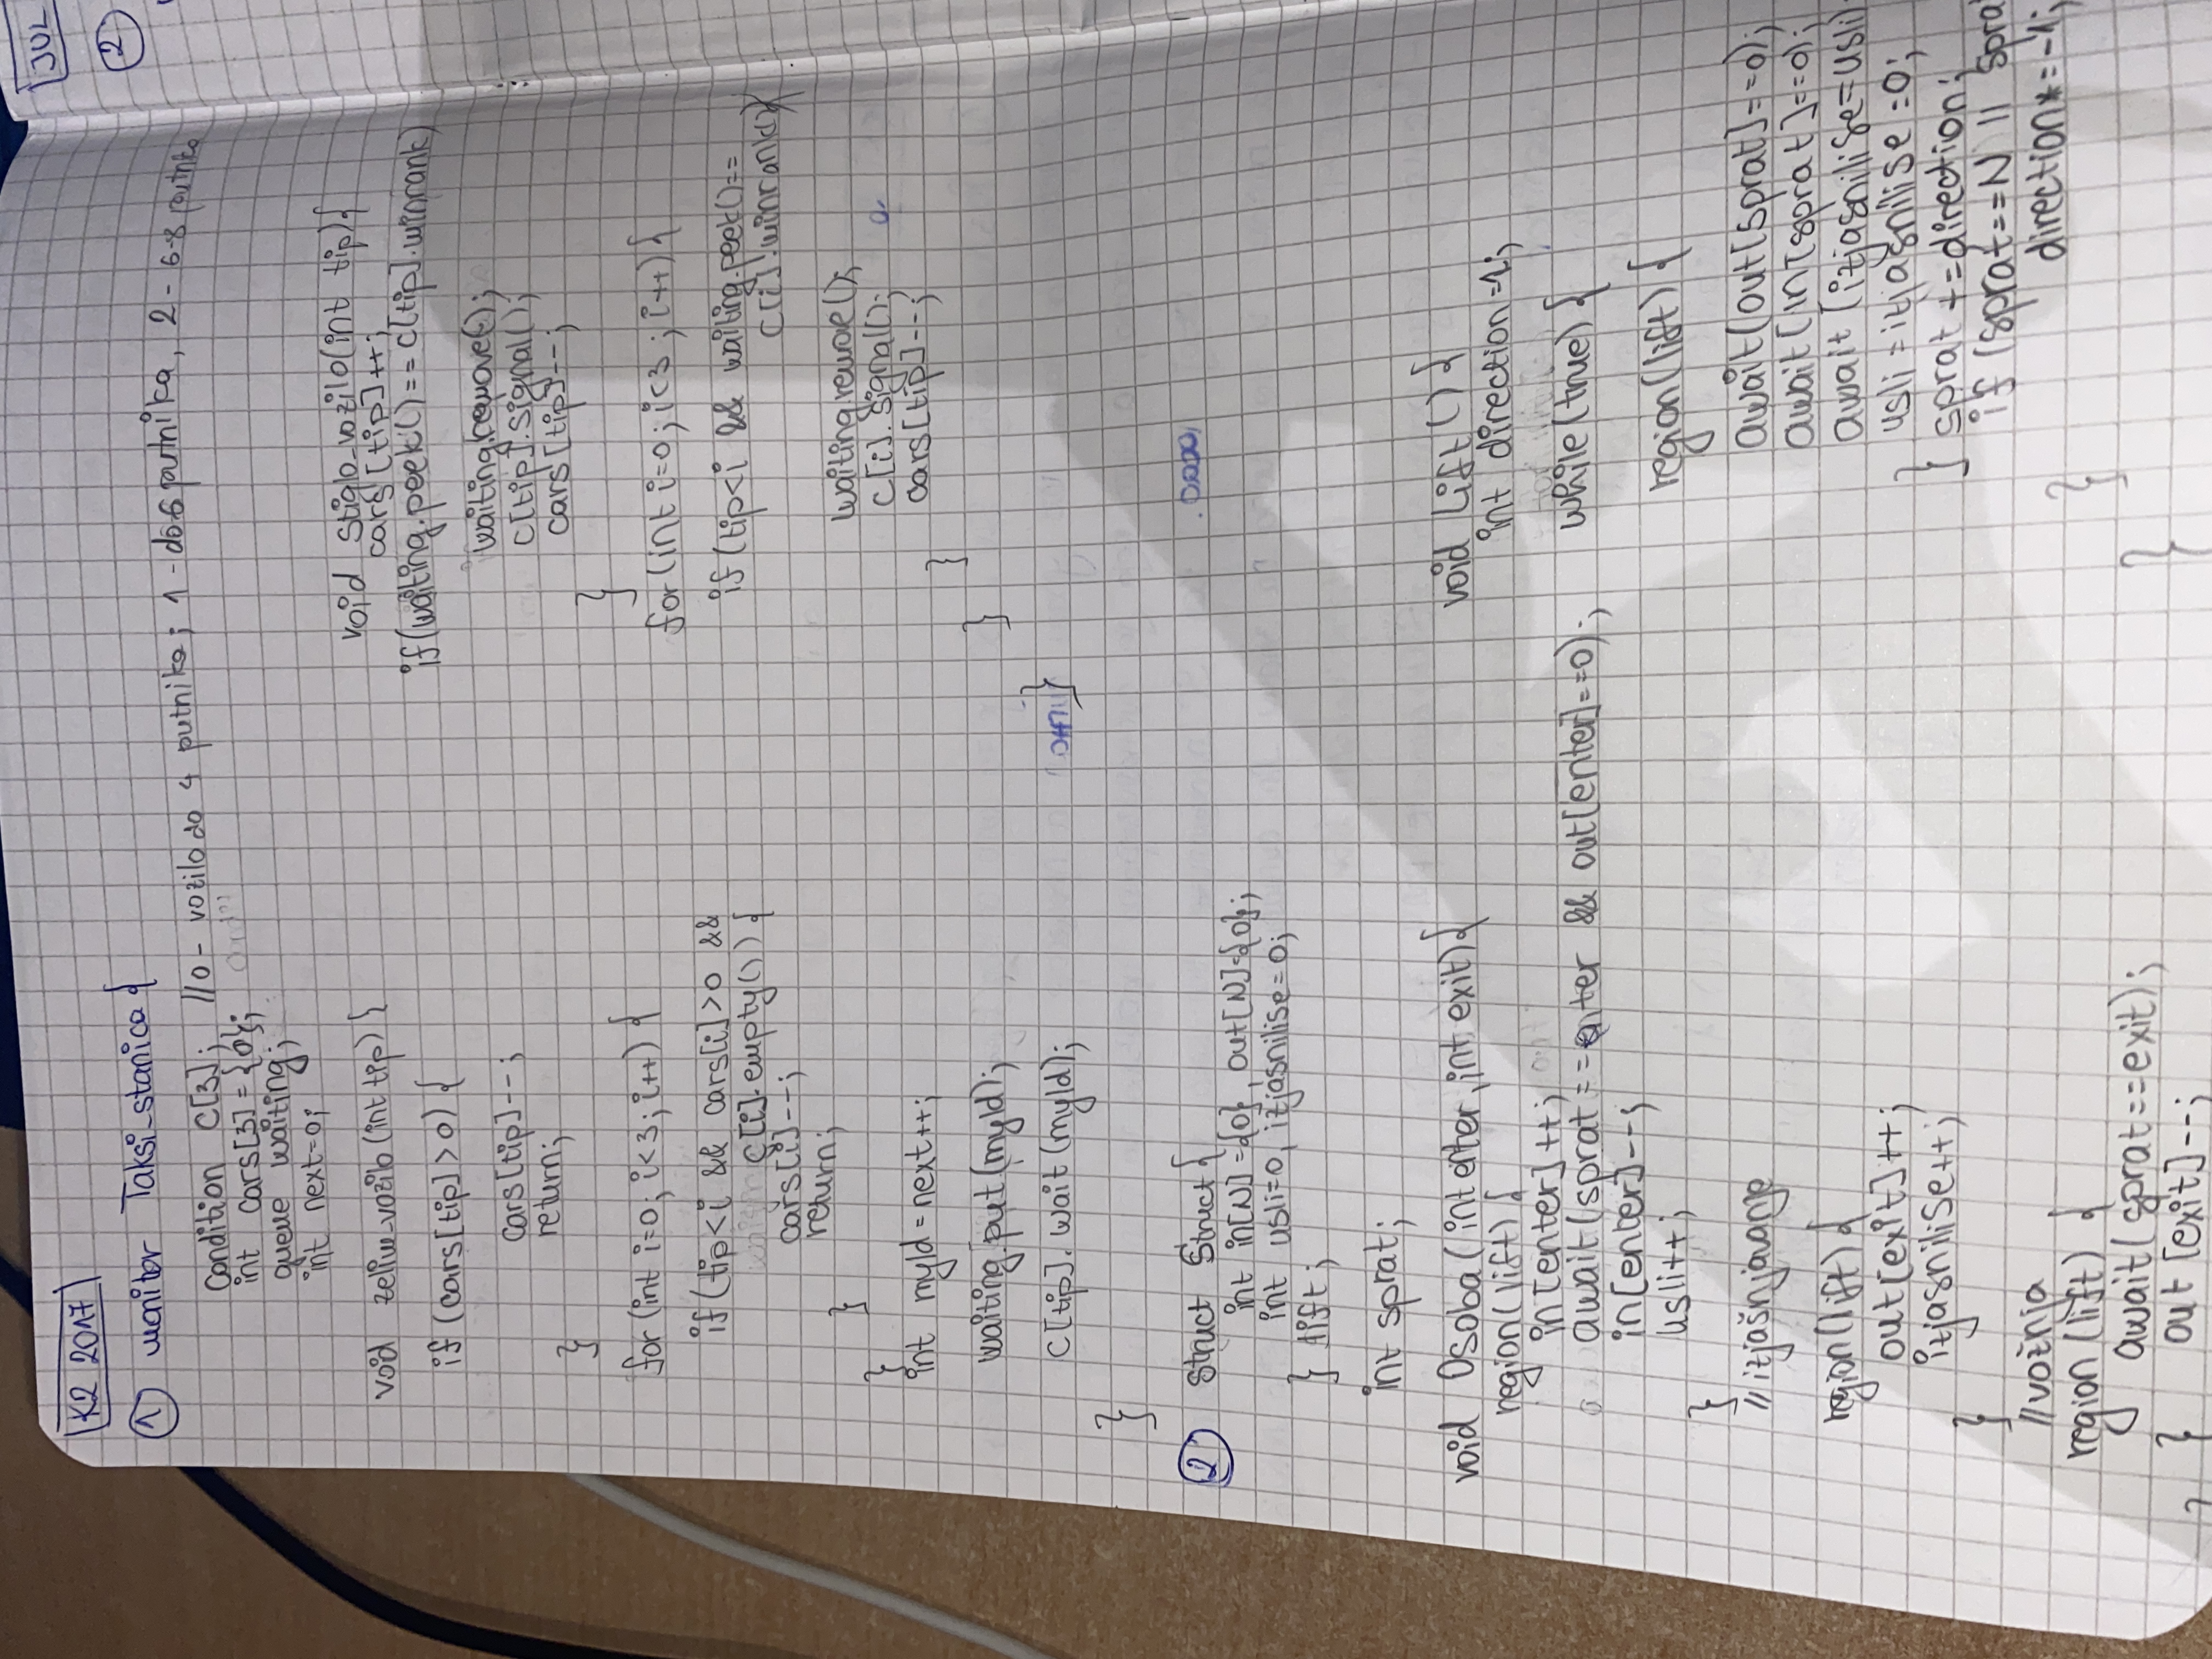 K2 2017
1 monitor Taksi_stanica {
condition c[3]; //0 - vozilo do 4 putnika; 1 - do 6 putnika, 2 - 6-8 putnika
int cars[3] = {0};
queue waiting;
int next=0;
void zelim_vozilo (int tip) {
if (cars[tip] > 0) {
cars[tip]--;
return;
}
for (int i=0; i<3; i++) {
if (tip<i && cars[i]>0 &&
c[i].empty()) {
cars[i]--;
return;
}
}
int myId = next++;
waiting.put(myId);
c[tip].wait(myId);
}
void stiglo_vozilo(int tip){
cars[tip]++;
if(waiting.peek()==c[tip].minrank)
waiting.remove();
c[tip].signal();
cars[tip]--;
}
for(int i=0; i<3; i++){
if (tip<i && waiting.peek()==
c[i].minrank()){
waiting.remove();
c[i].signal();
cars[tip]--;
}
}
}
2 struct Struct{
int in[N]={0}, out[N]={0};
int usli=0, izjasnilise=0;
} lift;
int sprat;
void Osoba(int enter, int exit){
region(lift){
in[enter]++;
await(sprat==enter && out[enter]==0);
in[enter]--;
usli++;
}
//izjašnjavanje
region(lift){
out[exit]++;
izjasnilise++;
}
//vožnja
region (lift) {
await(sprat==exit);
} out [exit]--;
}
void Lift() {
int direction=1;
while(true) {
region(lift) {
await(out[sprat]==0);
await(in[sprat]==0);
await(izjasnilise=usli)
usli=izjasnilise=0;
} sprat+=direction;
if (sprat==N || spra
direction*=-1;
}
}
JUL
2